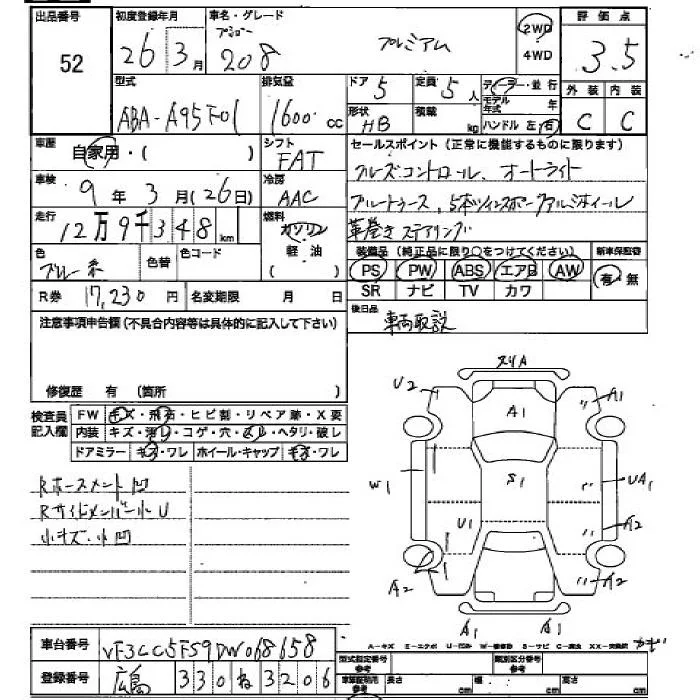 出品番号 52
初度登録年月 26年3月
車名・グレード プジョー 208 プレミアム
2WD
4WD
評価点 3.5
外装 内装
C C
型式 ABA-A95F01
排気量 1600cc
ドア 5
定員 5人
形状 HB
積載 kg
ディーラー・並行
モデル年式 年
ハンドル 左・右
車歴 自家用・( )
シフト FAT
セールスポイント(正常に機能するものに限ります)
クルーズコントロール、オートライト
ブルートゥース、5本ツインスポークアルミホイール
革巻きステアリング
車検 9年3月(26日)
冷房 AAC
走行 12万9千348km
燃料 ガソリン
軽油
色 ブルー系
色替
色コード
装備品(純正品に限り○をつけてください)
新車保証書
PS PW ABS エアB AW
SR ナビ TV カワ
有・無
R券 17,230円
名変期限 月 日
後日品 車両取説
注意事項申告欄(不具合内容等は具体的に記入して下さい)
修復歴 有(箇所 )
検査員記入欄
FW キズ・飛石・ヒビ割・リペア跡・X要
内装 キズ・汚れ・コゲ・穴・スレ・ヘタリ・破レ
ドアミラー キズ・ワレ ホイール・キャップ キズ・ワレ
Rホースメント凹
Rサイドメンバー小U
小キズ・小凹
スリA
U2
A1
A1
W1
S1
UA1
U1
A2
A2
A2
A1
A1
A-キズ E-エクボ U-凹み W-補修跡 S-サビ C-腐食 XX-交換済
車台番号 VF3CC5FS9DW068658
登録番号 広島 330 ね 3206
型式指定番号 参考
類別区分番号 参考
車体証明用 参考
長さ cm
幅 cm
高さ cm